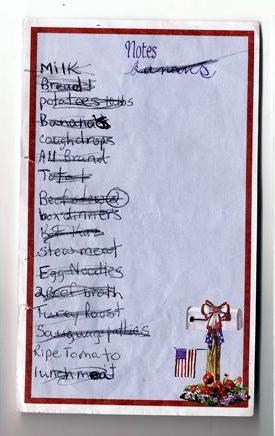 Notes
bananas
Milk
Bread 1
potatoes 10 lbs
Bananas
cough drops
All Brand
Total
Beef stew 2
box dinners
Kit Kats
stew meat
Egg Noodles
2 Beef broth
Turey Roast
Sauguage patties
Ripe Tomato
lunch meat